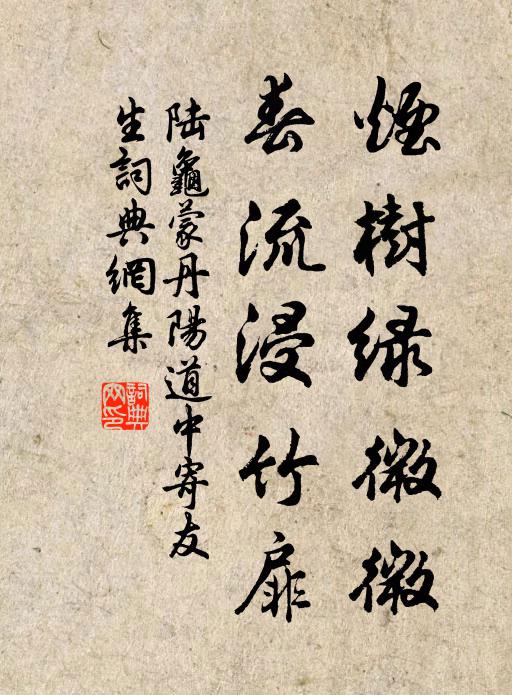 煙樹綠微微
春流浸竹扉
陸龜蒙丹陽道中寄友
生詞典網集
詞典網印